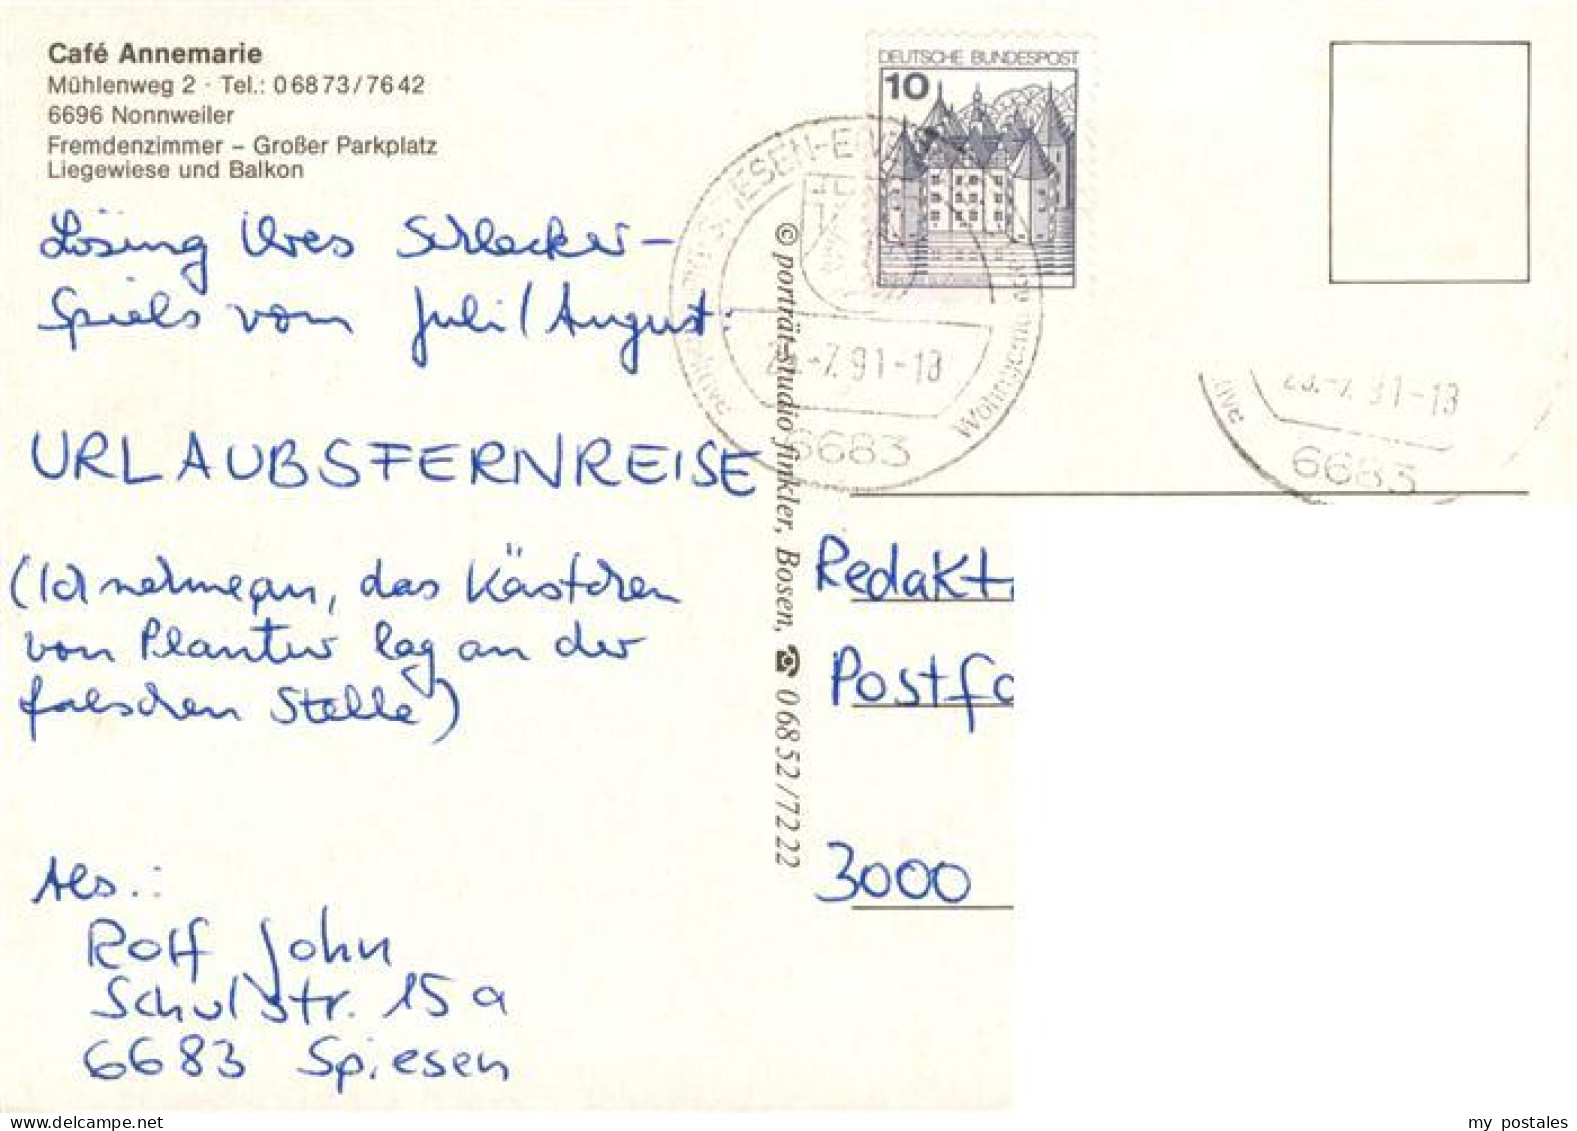 Café Annemarie
Mühlenweg 2 · Tel.: 0 68 73 / 76 42
6696 Nonnweiler
Fremdenzimmer – Großer Parkplatz
Liegewiese und Balkon
Lösung Ihres Schlecker-
Spiels vom Juli/August:
URLAUBSFERNREISE
(Ich nehme an, das Kästchen
von Plantur lag an der
falschen Stelle)
Abs.:
Rolf John
Schulstr. 15 a
6683 Spiesen
© porträt-studio finkler, Bosen, ☎ 0 68 52 / 72 22
DEUTSCHE BUNDESPOST
10
-7.91-18
6683
-7.91-18
6683
Redakt
Postfa
3000
my postales